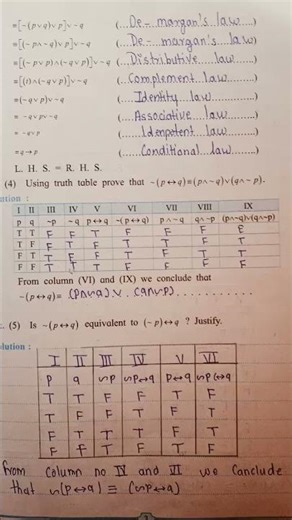 ≡[~(p∨q)∨p]∨~q (...De- margan's law...)
≡[(~p∧~q)∨p]∨~q (...De- margan's law...)
≡[(~p∨p)∧(~q∨p)]∨~q (...Distributive law...)
≡[(t)∧(~q∨p)]∨~q (...Complement law...)
≡(~q∨p)∨~q (...Identity law...)
≡ ~q∨p∨~q (...Associative law...)
≡ ~q∨p (...Idempotent law...)
≡q→p (...Conditional law...)
L. H. S. = R. H. S.
(4) Using truth table prove that ~(p↔q)≡(p∧~q)∨(q∧~p).
ution :
I II III IV V VI VII VIII IX
p q ~p ~q p↔q ~(p↔q) p∧~q q∧~p (p∧~q)∨(q∧~p)
T T F F T F F F F
T F F T F T T F T
F T T F F T F T T
F F T T T F F F F
From column (VI) and (IX) we conclude that
~(p↔q)≡ (p∩q)∨ (q∩p)..........
(5) Is ~(p↔q) equivalent to (~p)↔q ? Justify.
olution :
I II III IV V VI
p q ~p ~p↔q p↔q ~p(↔q
T T F F T F
T F F T F T
F T T T F T
F F T F T F
From column no IV and VI we canclude
that ~(p↔q) ≡ (~p↔q)